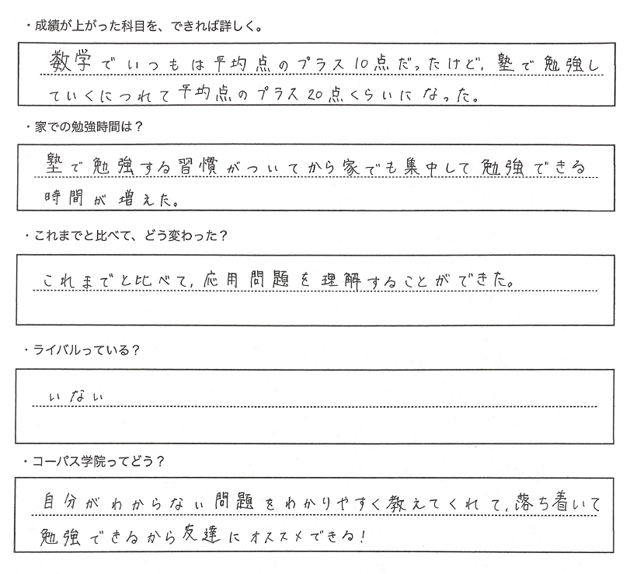 ・成績が上がった科目を、できれば詳しく。
数学でいつもは平均点のプラス10点だったけど、塾で勉強し
ていくにつれて平均点のプラス20点くらいになった。
・家での勉強時間は？
塾で勉強する習慣がついてから家でも集中して勉強できる
時間が増えた。
・これまでと比べて、どう変わった？
これまでと比べて、応用問題を理解することができた。
・ライバルっている？
いない
・コーパス学院ってどう？
自分がわからない問題をわかりやすく教えてくれて、落ち着いて
勉強できるから友達にオススメできる！